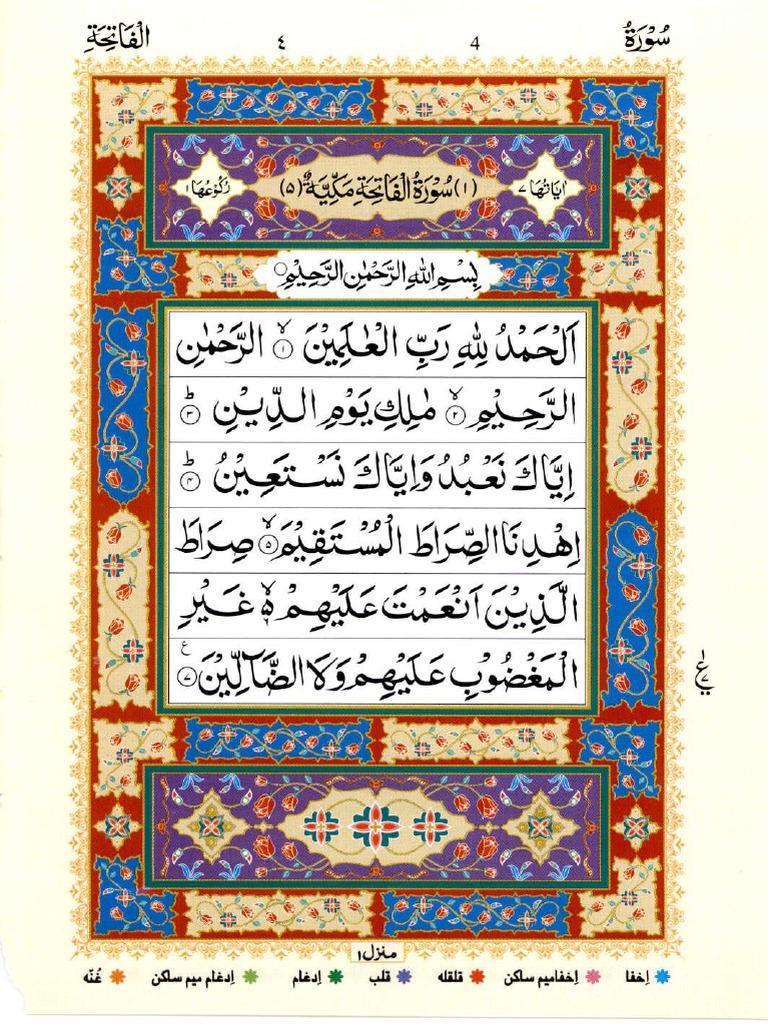 سُوْرَةُ 4 ٤ الْفَاتِحَةِ
اٰيَاتُهَا ٧ (١) سُوْرَةُ الْفَاتِحَةِ مَكِّيَّةٌ (٥) رُكُوْعُهَا ١
بِسْمِ اللّٰهِ الرَّحْمٰنِ الرَّحِيْمِ
اَلْحَمْدُ لِلّٰهِ رَبِّ الْعٰلَمِيْنَ ۙ﴿١﴾ الرَّحْمٰنِ
الرَّحِيْمِ ۙ﴿٢﴾ مٰلِكِ يَوْمِ الدِّيْنِ ؕ﴿٣﴾
اِيَّاكَ نَعْبُدُ وَاِيَّاكَ نَسْتَعِيْنُ ؕ﴿٤﴾
اِهْدِنَا الصِّرَاطَ الْمُسْتَقِيْمَ ۙ﴿٥﴾ صِرَاطَ
الَّذِيْنَ اَنْعَمْتَ عَلَيْهِمْ ۙ۬ غَيْرِ
الْمَغْضُوْبِ عَلَيْهِمْ وَلَا الضَّآلِّيْنَ ﴿٧﴾
منزل ١
اِخفا اِخفامیم ساکن قلقله قلب اِدغام اِدغام میم ساکن غُنّه